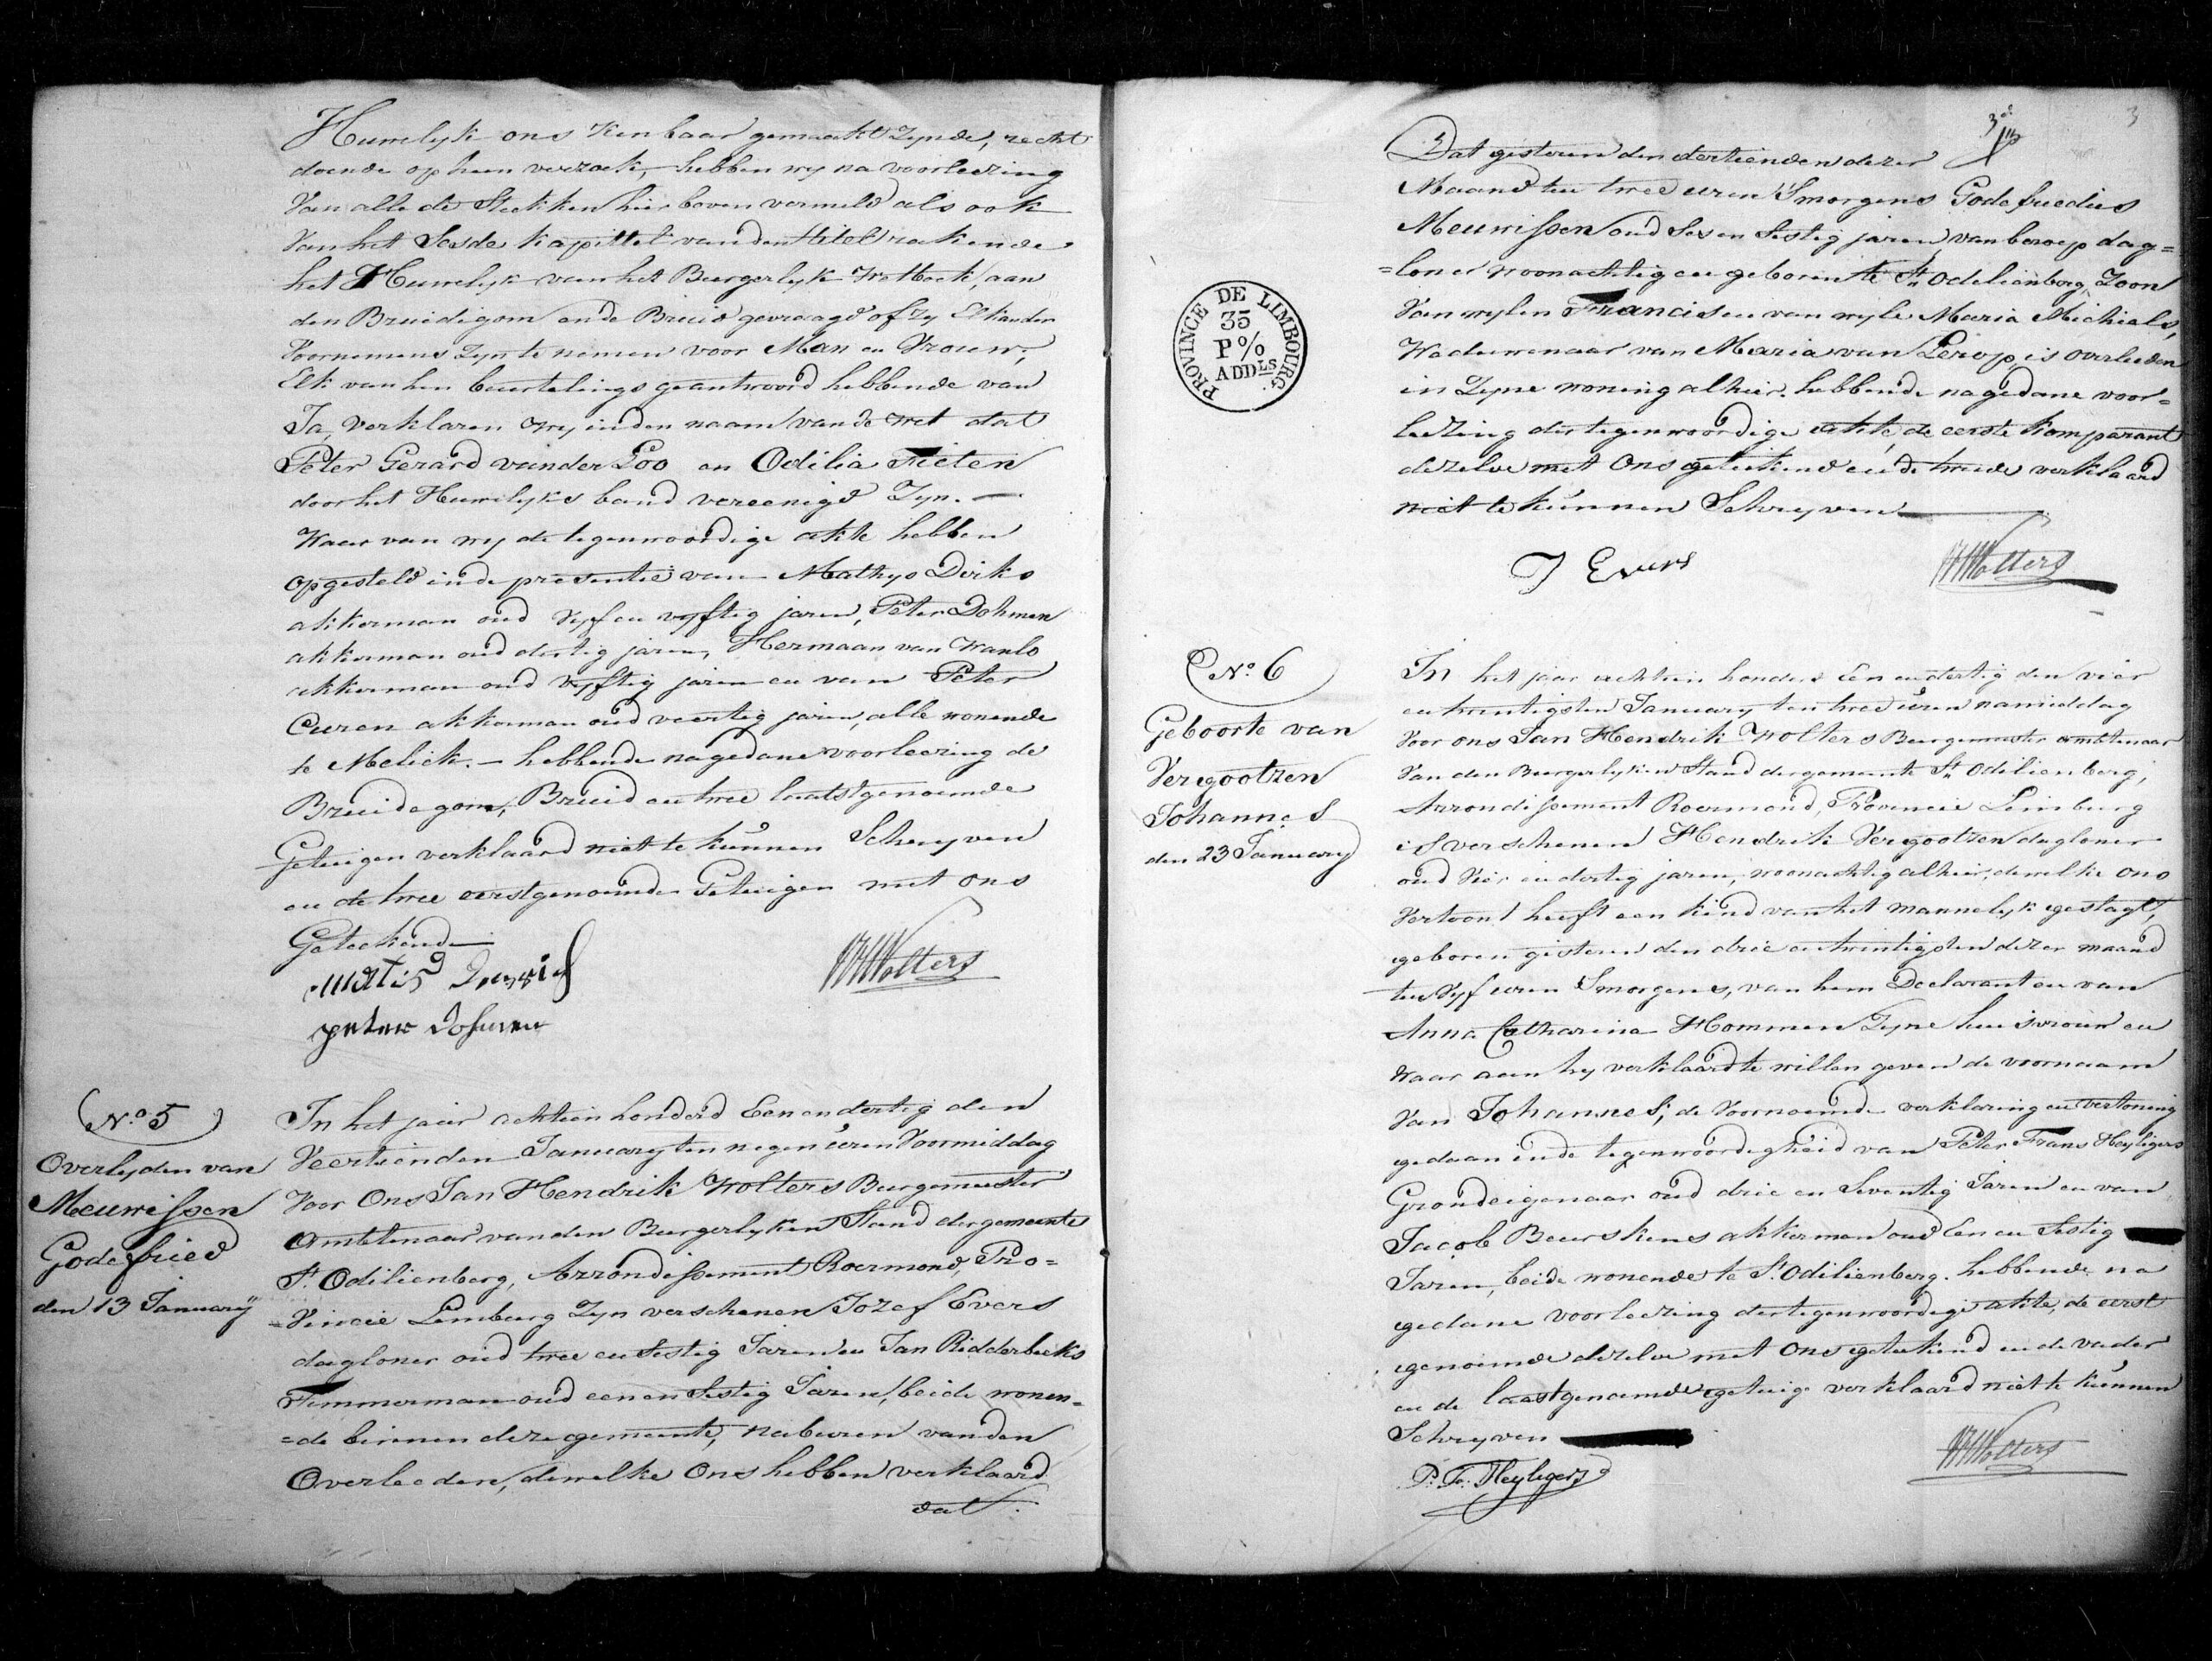 Huwelyk ons Kenbaar gemaakt Zynde, recht
doende op hun verzoek, hebben wy na voorleezing
Van alle de Stukken hier boven vermeld als ook
Van het Sesde kapittel van den titel rakende
het Huwelyk van het Burgerlyk Wetboek, aan
den Bruidegom en de Bruid gevraagd of zy Elkander
Voornemens Zyn te nemen voor Man en Vrouw;
Elk van hen beurtelings geantwoord hebbende van
Ja, verklaren wy in den naam van de wet dat
Peter Gerard vander Loo en Odilia Fieten
door het Huwelyks band vereenigd Zyn. —
Waar van wy de tegenwoordige akte hebben
opgesteld in de presentie van Mathys Dirks
akkerman oud Vyf en vyftig jaren, Peter Dohmen
akkerman oud dertig jaren, Hermaan van Wanlo
akkerman oud vyftig jaren en van Peter
Curen akkerman oud veertig jaren, alle wonende
te Melick. — hebbende na gedane voorleezing de
Bruidegom, Bruid en twee laatstgenoemde
Getuigen verklaard niet te kunnen Schryven
en de twee eerstgenoemde Getuigen met ons
Geteekend
peter Dohmen
JHWolters
No. 5
Overlyden van
Meuwissen
Godefried
den 13 January
In het jaar achtien honderd Een en dertig den
Veertienden January ten negen uren Voormiddag
Voor Ons Jan Hendrik Wolters Burgemeester
Ambtenaar van den Burgerlyken Stand der gemeente
St. Odilienberg, Arrondissement Roermond, Pro=
=Vincie Limburg Zyn verschenen Jozef Evers
dagloner oud twee en Sestig Jaren en Jan Ridderbeeks
Timmerman oud een en Sestig Jaren, beide wonen=
=de binnen deze gemeente, naburen van den
Overleeden, dewelke Ons hebben verklaard
dat
3
Dat gisteren den dertienden dezer
Maand ten twee uren Smorgens Godefriedus
Meuwissen oud Ses en Sestig jaren van beroep dag=
=loner woonachtig en geboren te St. Odelienberg, Zoon
Van wylen Francis en van wyle Maria Michiels,
Weduwenaar van Maria van Lerop, is overleeden
in Zyne woning alhier. hebbende na gedane voor=
leezing der tegenwoordige akte, de eerste komparant
dezelve met Ons geteekend en de tweede verklaard
niet te kunnen Schryven
J Evers
JHWolters
PROVINCE DE LIMBOURG.
35
P%
ADDLS
No. 6
Geboorte van
Vergootzen
Johannes
den 23 January
In het jaar achtien honderd Een en dertig den vier
en twintigsten January ten twee uren namiddag
Voor ons Jan Hendrik Wolters Burgemeester ambtenaar
Van den Burgerlyken Stand der gemeente St. Odilienberg,
Arrondissement Roermond, Provincie Limburg
is verschenen Hendrik Vergootzen dagloner
oud Vier en dertig jaren, woonachtig alhier, dewelke ons
Vertoont heeft een kind van het mannelyk geslagt,
geboren gisteren den drie en twintigsten dezer maand
ten Vyf uren Smorgens, van hem Declarant en van
Anna Catharina Hommen Zyne huisvrouw en
Waar aan hy verklaard te willen geven de voornaam
Van Johannes; de Voornoemde verklaring en vertoning
gedaan in de tegenwoordigheid van Peter Frans Heyligers
Grondeigenaar oud drie en Seventig Jaren en van
Jacob Beurskens akkerman oud Een en Sestig
Jaren, beide wonende te St. Odilienberg. hebbende na
gedane voorleezing der tegenwoordige akte, de eerst
genoemde dezelve met Ons geteekend en de vader
en de laastgenoemde getuige verklaard niet te kunnen
Schryven
P. Fr. Heyligers
JHWolters